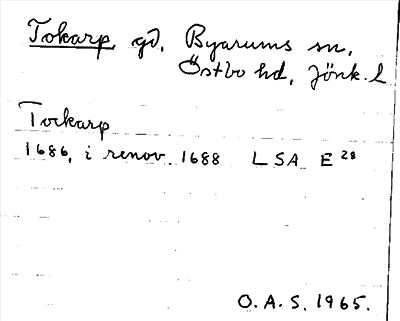 Tokarp, gd, Byarums sn,
Östbo hd, Jönk. l
Torkarp
1686, i renov. 1688 LSA E 28
O.A.S. 1965.